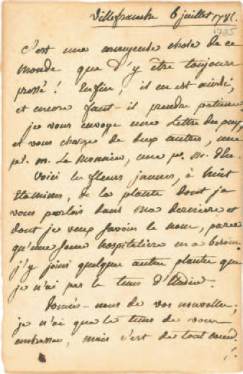 Villefranche 6 juillet 1785.
1785
C'est une ennuyeuse chose de ce
monde que d'y être toujours
pressé! Enfin, il en est ainsi,
et encore faut-il prendre patience
je vous envoye une Lettre du
et vous charge de deux autres, une
pr. m. Le Monnier, une pr. m.
Voici les fleurs jaunes, à huit
Etamines, de la plante dont je
vous parlois dans ma dernière et
dont je veux savoir le nom, parce
qu'une Soeur hospitalière en a besoin.
j'y joins quelque autre plante que
je n'ai pas le tems d'
Donnés-nous de vos nouvelles,
je n'ai que le tems de vous
embrasser, mais c'est de tout coeur.